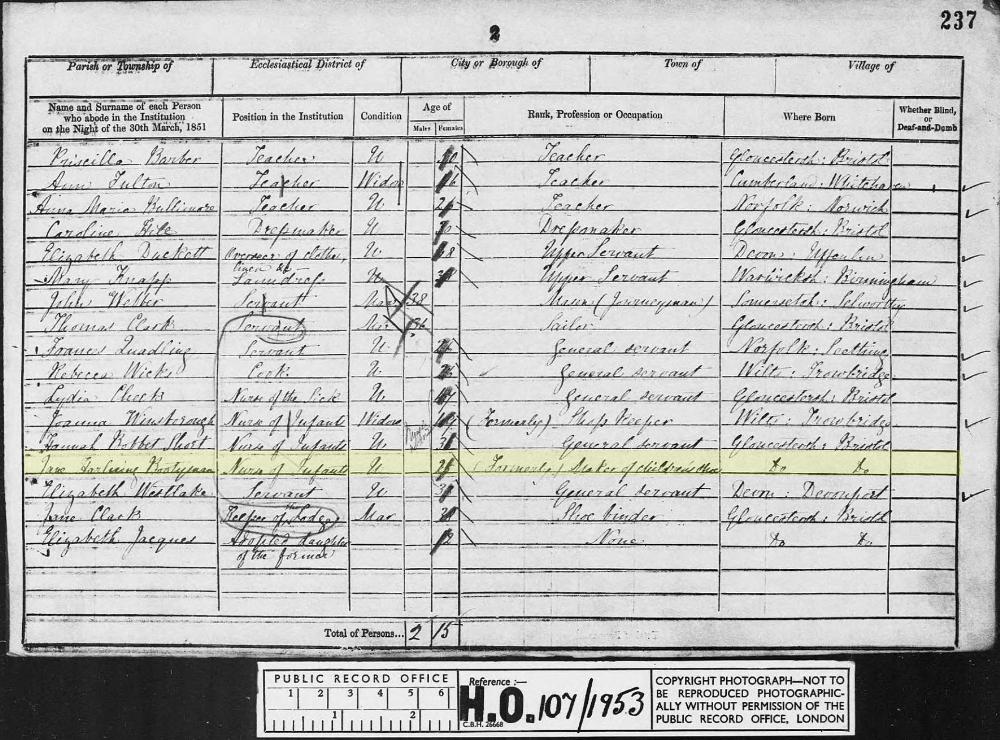 237
2
Parish or Township of Ecclesiastical District of City or Borough of Town of Village of
Name and Surname of each Person who abode in the Institution on the Night of the 30th March, 1851 Position in the Institution Condition Age of Males Females Rank, Profession or Occupation Where Born Whether Blind, or Deaf-and-Dumb
Priscilla Barber Teacher U Teacher Gloucestersh: Bristol
Ann Fulton Teacher Widow Teacher Cumberland: Whitehaven
Anna Maria Bullimore Teacher U Teacher Norfolk: Norwich
Caroline Dressmaker U Dressmaker Gloucestersh: Bristol
Elizabeth Duckett Overseer of clothes, linen &c U Upper Servant Devon: Uffculm
Mary Knapp Laundress U Upper Servant Warwicksh: Birmingham
John Weber Servant Mar 38 Mason (Journeyman) Somersetsh: Selworthy
Thomas Clark Servant Mar 36 Sailor Gloucestersh: Bristol
Frances Quadling Servant U General servant Norfolk: Seething
Rebecca Wicks Cook U General servant Wilts: Trowbridge
Lydia Cheek Nurse of the Sick U General servant Gloucestersh: Bristol
Joanna Winsborough Nurse of Infants Widow (Formerly) Shop Keeper Wilts: Trowbridge
Hannah Short Nurse of Infants U General servant Gloucestersh: Bristol
Jane Bootyman Nurse of Infants U (Formerly) Maker of children's shoes do do
Elizabeth Westlake Servant U General servant Devon: Devonport
Jane Clark Keeper of the Lodge Mar Shoe binder Gloucestersh: Bristol
Elizabeth Jacques Adopted daughter of the former None do do
Total of Persons... 2 15
PUBLIC RECORD OFFICE
1 2 3 4 5 6
1 2
Reference :—
H.O. 107/1953
C.B.H. 26668
COPYRIGHT PHOTOGRAPH—NOT TO
BE REPRODUCED PHOTOGRAPHIC-
ALLY WITHOUT PERMISSION OF THE
PUBLIC RECORD OFFICE, LONDON